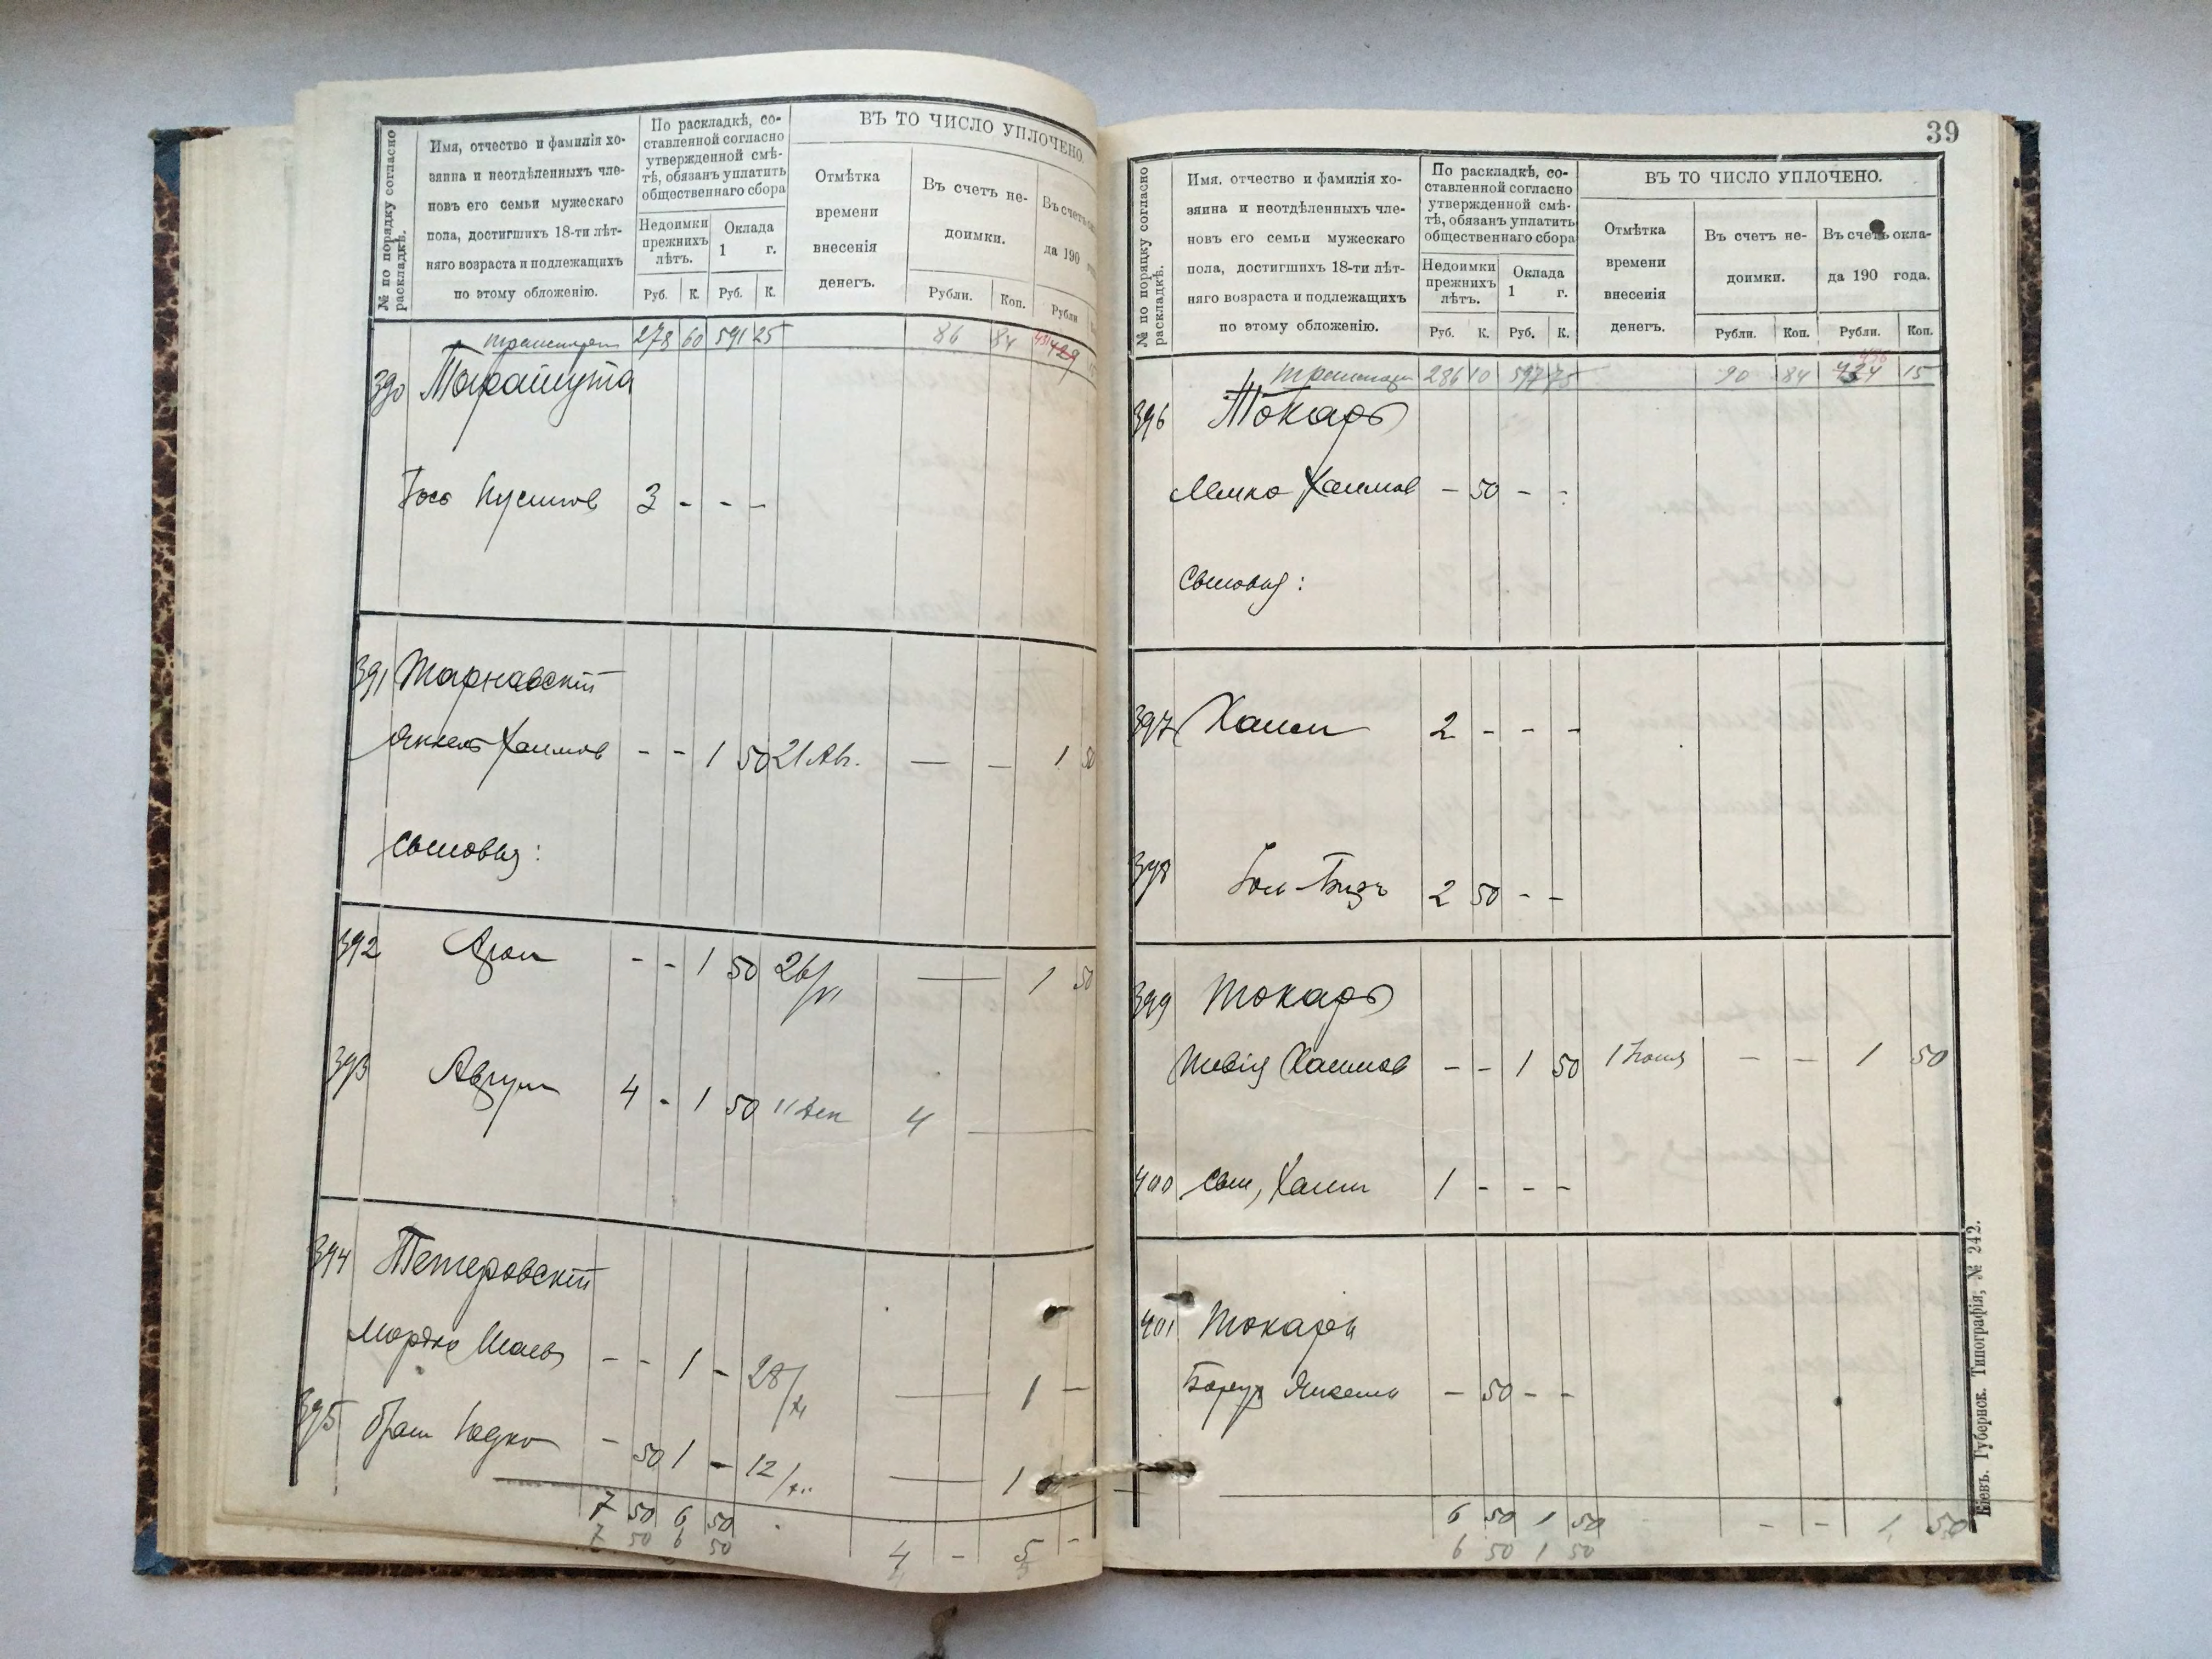 № по порядку согласно раскладкѣ.
Имя, отчество и фамилія хо-
зяина и неотдѣленныхъ чле-
новъ его семьи мужескаго
пола, достигшихъ 18-ти лѣт-
няго возраста и подлежащихъ
по этому обложенію.
По раскладкѣ, со-
ставленной согласно
утвержденной смѣ-
тѣ, обязанъ уплатить
общественнаго сбора
Недоимки прежнихъ лѣтъ.
Оклада 1 г.
Руб. К. Руб. К.
ВЪ ТО ЧИСЛО УПЛОЧЕНО.
Отмѣтка
времени
внесенія
денегъ.
Въ счетъ не-
доимки.
Рубли. Коп.
Въ счетъ
да 190
Рубли
278 60 591 25 86 84
390
3 - - -
391 Тарнавскій
Янкель Хаимов - - 1 50 21 Ав. — — 1 50
Сыновья:
392 Арон - - 1 50 26/VI — 1 50
393 Аврум 4 - 1 50 11 Дек 4 —
394 Тетеровскій
Мордко - - 1 - 28/ — 1 —
395 брат Юдко - 50 1 - 12/ — 1
7 50 6 50
7 50 6 50
4 - 5 -
39
№ по порядку согласно раскладкѣ.
Имя, отчество и фамилія хо-
зяина и неотдѣленныхъ чле-
новъ его семьи мужескаго
пола, достигшихъ 18-ти лѣт-
няго возраста и подлежащихъ
по этому обложенію.
По раскладкѣ, со-
ставленной согласно
утвержденной смѣ-
тѣ, обязанъ уплатить
общественнаго сбора
Недоимки прежнихъ лѣтъ.
Оклада 1 г.
Руб. К. Руб. К.
ВЪ ТО ЧИСЛО УПЛОЧЕНО.
Отмѣтка
времени
внесенія
денегъ.
Въ счетъ не-
доимки.
Рубли. Коп.
Въ счетъ окла-
да 190 года.
Рубли. Коп.
286 10 597 75 90 84 15
396 Токарь
Хаимов - 50 - -
Сыновья:
397 Хаим 2 - - -
398 2 50 - -
399 Токарь
Тевія Хаимов - - 1 50 1 Іюня - - 1 50
400 Сын, Хаим 1 - - -
401 Токарь
Борух - 50 - -
6 50 1 50 - - 1 50
6 50 1 50
Кіевъ. Губернск. Типографія, № 242.